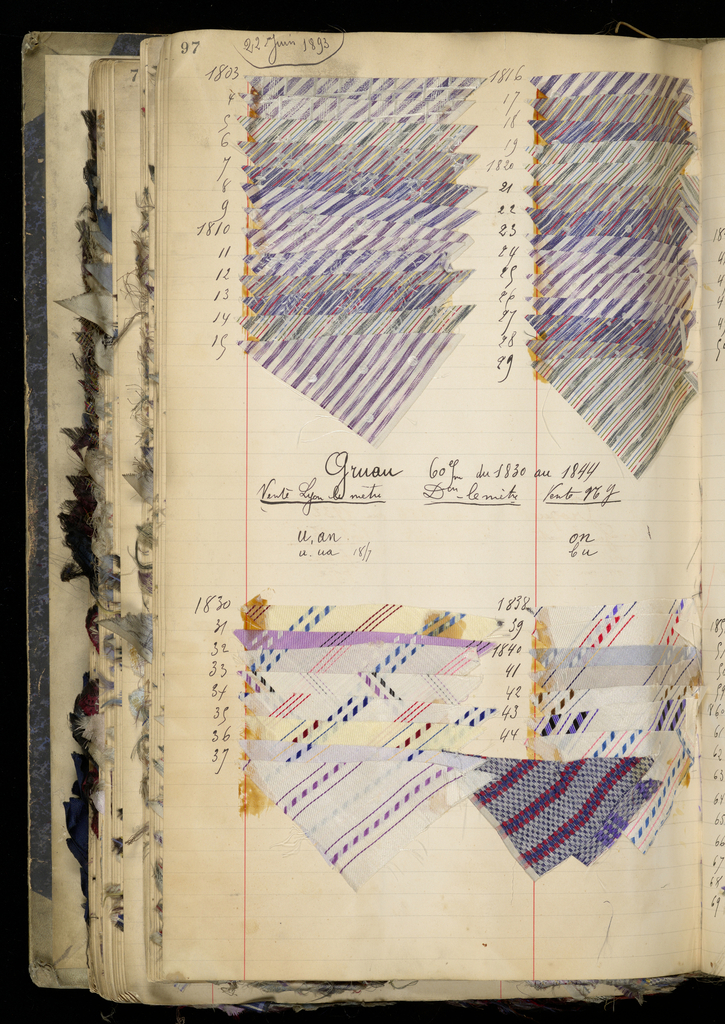 97
22 Juin 1893
7
1803
4
5
6
7
8
9
1810
11
12
13
14
15
1816
17
18
19
1820
21
22
23
24
25
26
27
28
29
Gruau 60 c/m du 1830 au 1844
Vente Lyon le mètre Don le mètre Vente N Y
u, an on
u. ua 18/7 bu
1830
31
32
33
34
35
36
37
1838
39
1840
41
42
43
44
63
64
65
66
67
68
69